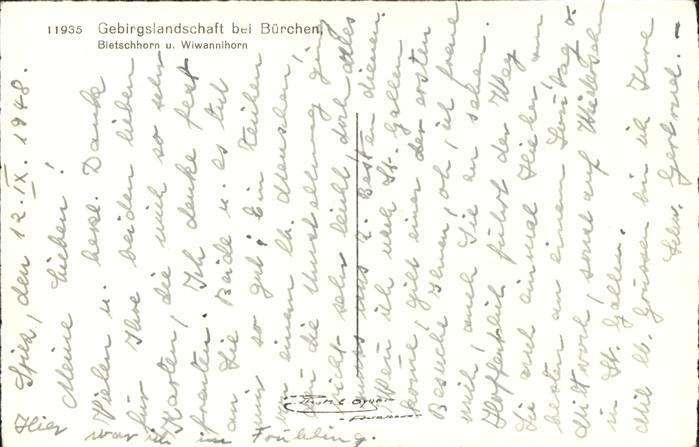 11935 Gebirgslandschaft bei Bürchen,
Bietschhorn u. Wiwannihorn
Spiez, den 12. IX. 1948.
Meine Lieben!
Vielen u. herz. Dank
für Ihre beiden lieben
Karten, die mich so sehr
freuten. Ich denke fest
an Sie Beide u. es tut
mir so gut! Ein Teilen
von einem lb. Menschen,
die Umstellung ging
nicht sehr leicht, doch alles
muss uns z. Besten dienen.
Wenn ich nach St. Gallen
komme, gilt einer der ersten
Besuche Ihnen, oh, ich freue
mich, auch Sie zu sehen.
Hoffentlich führt der Weg
Sie auch einmal hieher, am
besten an einem Sonntag o.
Mittwoch, sonst auf Wiedersehen
in St. Gallen.
Mit lb. Grüssen bin ich Ihre
Schw. Gertrud. -
Hier war ich im Frühling.